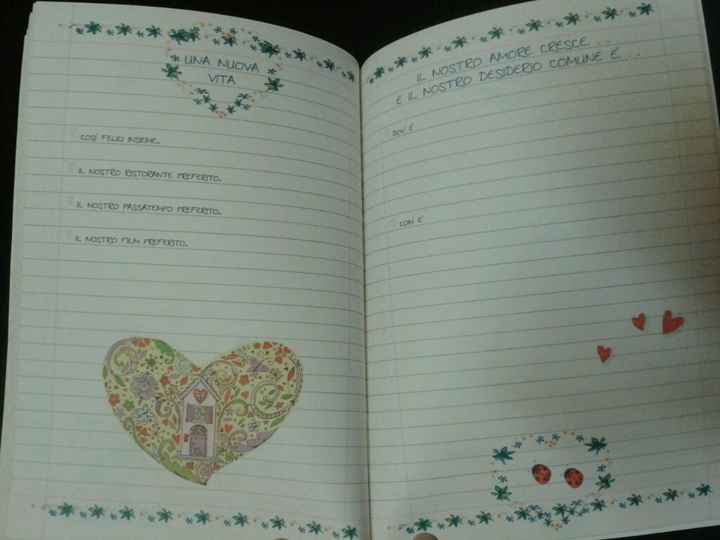 UNA NUOVA
VITA
COSÌ FELICI INSIEME..
IL NOSTRO RISTORANTE PREFERITO..
IL NOSTRO PASSATEMPO PREFERITO..
IL NOSTRO FILM PREFERITO..
IL NOSTRO AMORE CRESCE . .
E IL NOSTRO DESIDERIO COMUNE È . . .
CON E